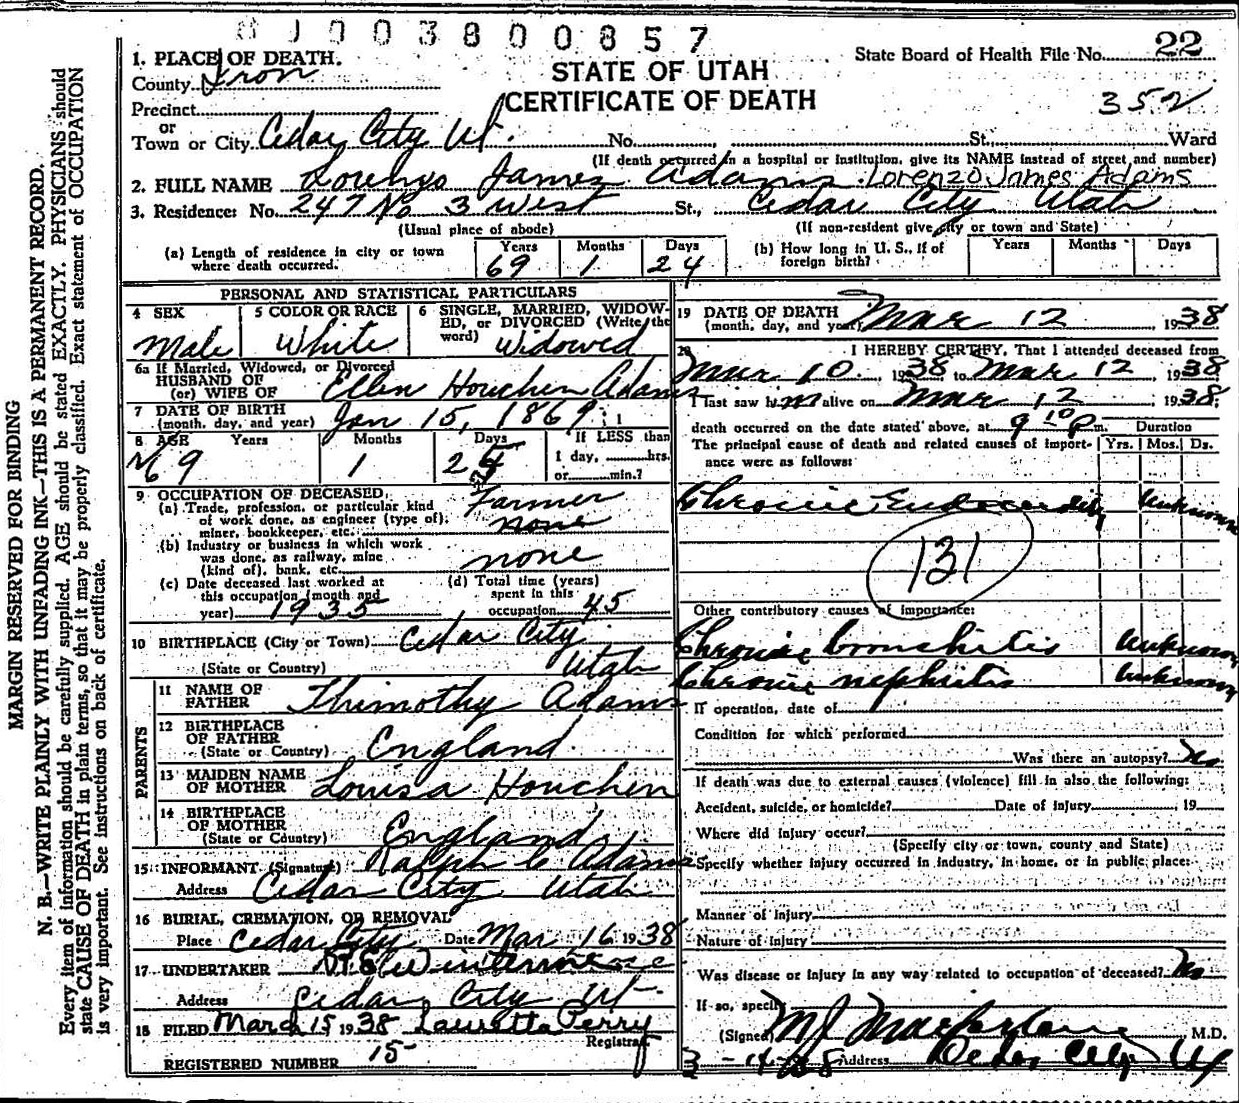 8 J 0 0 3 8 0 0 8 5 7
State Board of Health File No. 22
1. PLACE OF DEATH.
County Iron
STATE OF UTAH
CERTIFICATE OF DEATH
352
Precinct
or
Town or City Cedar City Ut. No. St., Ward
(If death occurred in a hospital or institution, give its NAME instead of street and number)
2. FULL NAME James Adams Lorenzo James Adams
3. Residence: No. 247 No. 3 West St., Cedar City Utah
(Usual place of abode) (If non-resident give city or town and State)
(a) Length of residence in city or town where death occurred. Years 69 Months 1 Days 24
(b) How long in U. S., if of foreign birth? Years Months Days
PERSONAL AND STATISTICAL PARTICULARS
4 SEX Male
5 COLOR OR RACE White
6 SINGLE, MARRIED, WIDOWED, or DIVORCED (Write the word) Widowed
6a If Married, Widowed, or Divorced
HUSBAND OF
(or) WIFE OF Ellen Houchen Adams
7 DATE OF BIRTH
(month, day, and year) Jan 15, 1869
8 AGE Years 69 Months 1 Days 25
If LESS than
1 day, hrs.
or min.?
9 OCCUPATION OF DECEASED,
(a) Trade, profession, or particular kind
of work done, as engineer (type of);
miner, bookkeeper, etc.
Farmer
none
(b) Industry or business in which work
was done, as railway, mine
(kind of), bank, etc.
none
(c) Date deceased last worked at
this occupation (month and
year) 1935
(d) Total time (years)
spent in this
occupation 45
10 BIRTHPLACE (City or Town) Cedar City
(State or Country) Utah
PARENTS
11 NAME OF
FATHER Thimothy Adams
12 BIRTHPLACE
OF FATHER
(State or Country) England
13 MAIDEN NAME
OF MOTHER Louisa Houchen
14 BIRTHPLACE
OF MOTHER
(State or Country) England
15 INFORMANT (Signature) Ralph C Adams
Address Cedar City Utah
16 BURIAL, CREMATION, OR REMOVAL
Place Cedar City Date Mar 16 1938
17 UNDERTAKER
Address Cedar City Ut.
18 FILED March 15 1938 Lauretta Perry
Registrar
REGISTERED NUMBER 15
19 DATE OF DEATH
(month, day, and year) Mar 12 1938
20 I HEREBY CERTIFY, That I attended deceased from
Mar 10, 1938 to Mar 12 1938
I last saw him alive on Mar 12 1938;
death occurred on the date stated above, at 9 10 p m. Duration
The principal cause of death and related causes of importance were as follows: Yrs. Mos. Ds.
Chronic Endocarditis Unknown
131
Other contributory causes of importance:
Chronic bronchitis Unknown
Chronic nephritis Unknown
If operation, date of
Condition for which performed
Was there an autopsy? No
If death was due to external causes (violence) fill in also the following:
Accident, suicide, or homicide? Date of injury 19
Where did injury occur?
(Specify city or town, county and State)
Specify whether injury occurred in industry, in home, or in public place:
Manner of injury
Nature of injury
Was disease or injury in any way related to occupation of deceased? No
If so, specify
(Signed) M J Macfarlane M.D.
3-14-38 Address Cedar City Ut
MARGIN RESERVED FOR BINDING
N. B.—WRITE PLAINLY WITH UNFADING INK—THIS IS A PERMANENT RECORD.
Every item of information should be carefully supplied. AGE should be stated EXACTLY. PHYSICIANS should
state CAUSE OF DEATH in plain terms, so that it may be properly classified. Exact statement of OCCUPATION
is very important. See instructions on back of certificate.